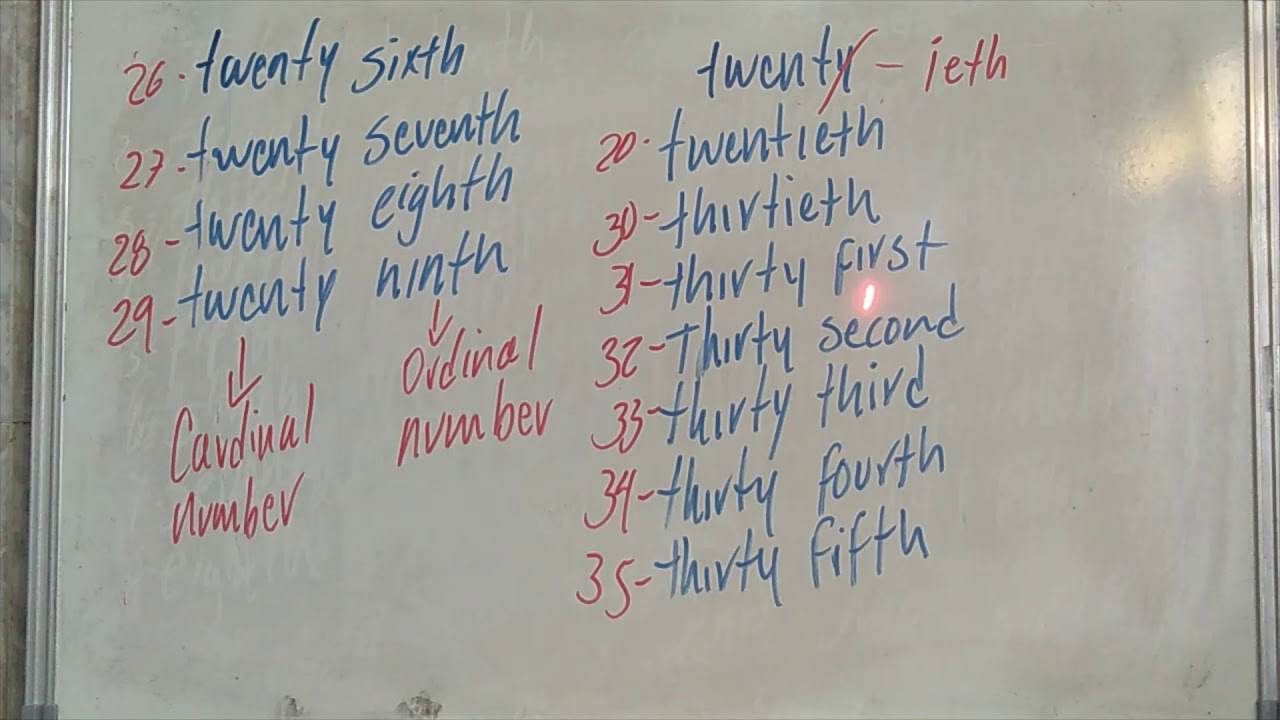 26. twenty sixth
27. twenty seventh
28 - twenty eighth
29 - twenty ninth
Cardinal
number
Ordinal
number
twenty - ieth
20. twentieth
30 - thirtieth
31 - thirty first
32 - Thirty second
33 - thirty third
34 - thirty fourth
35 - thirty fifth